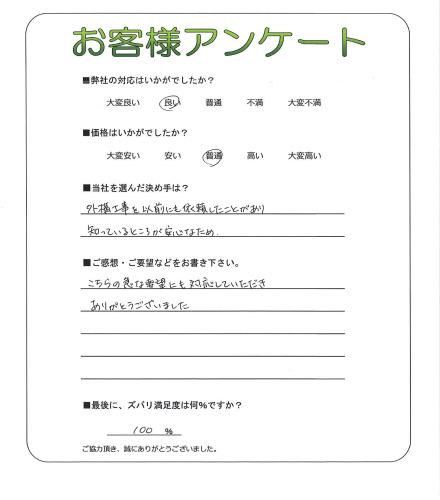 お客様アンケート
■弊社の対応はいかがでしたか？
大変良い 良い 普通 不満 大変不満
■価格はいかがでしたか？
大変安い 安い 普通 高い 大変高い
■当社を選んだ決め手は？
外構工事を以前にも依頼したことがあり
知っているところが安心なため.
■ご感想・ご要望などをお書き下さい。
こちらの急な要望にも対応していただき
ありがとうございました
■最後に、ズバリ満足度は何％ですか？
100 ％
ご協力頂き、誠にありがとうございました。